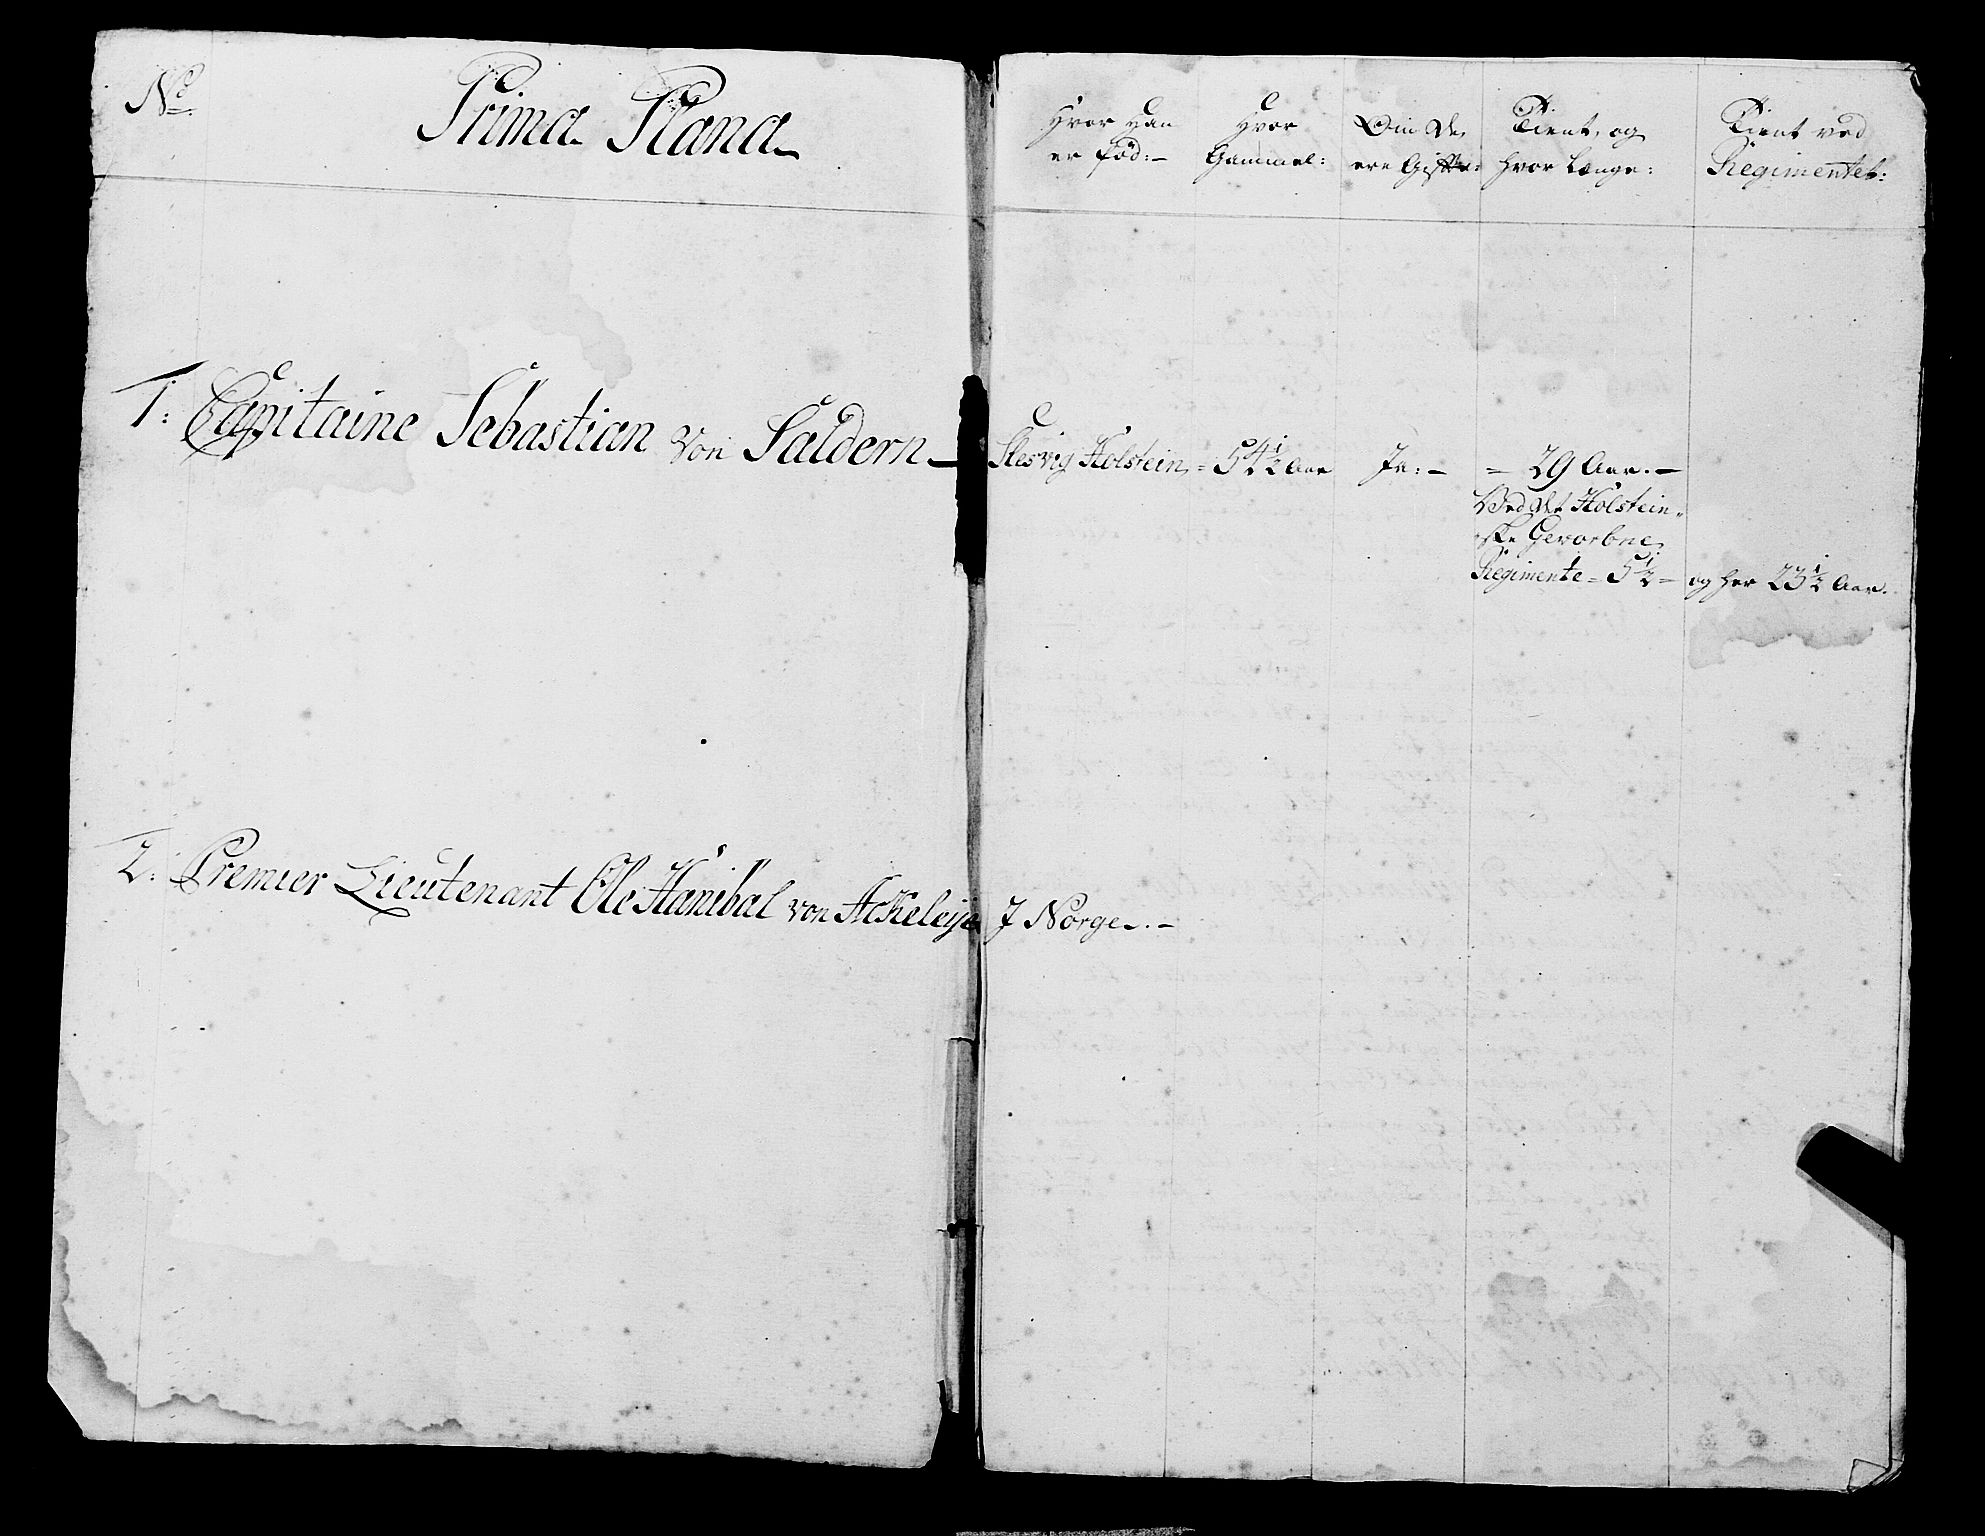 No
Prima Plana
Hvor Han er fød:
Hvor Gammel:
Om De ere Gifte:
Tient og hvor Længe:
Tient ved Regimentet:
1: Capitaine Sebastian von Saldern Slesvig Holstein = 54 1/2 Aar Ja: = 29 Aar.
Ved det Holstein=
ske Gevorbne
Regimente = 5 1/2 = og her 23 1/2 Aar.
2: Premier Lieutenant Ole Hanibal von Ackeleije I Norge.